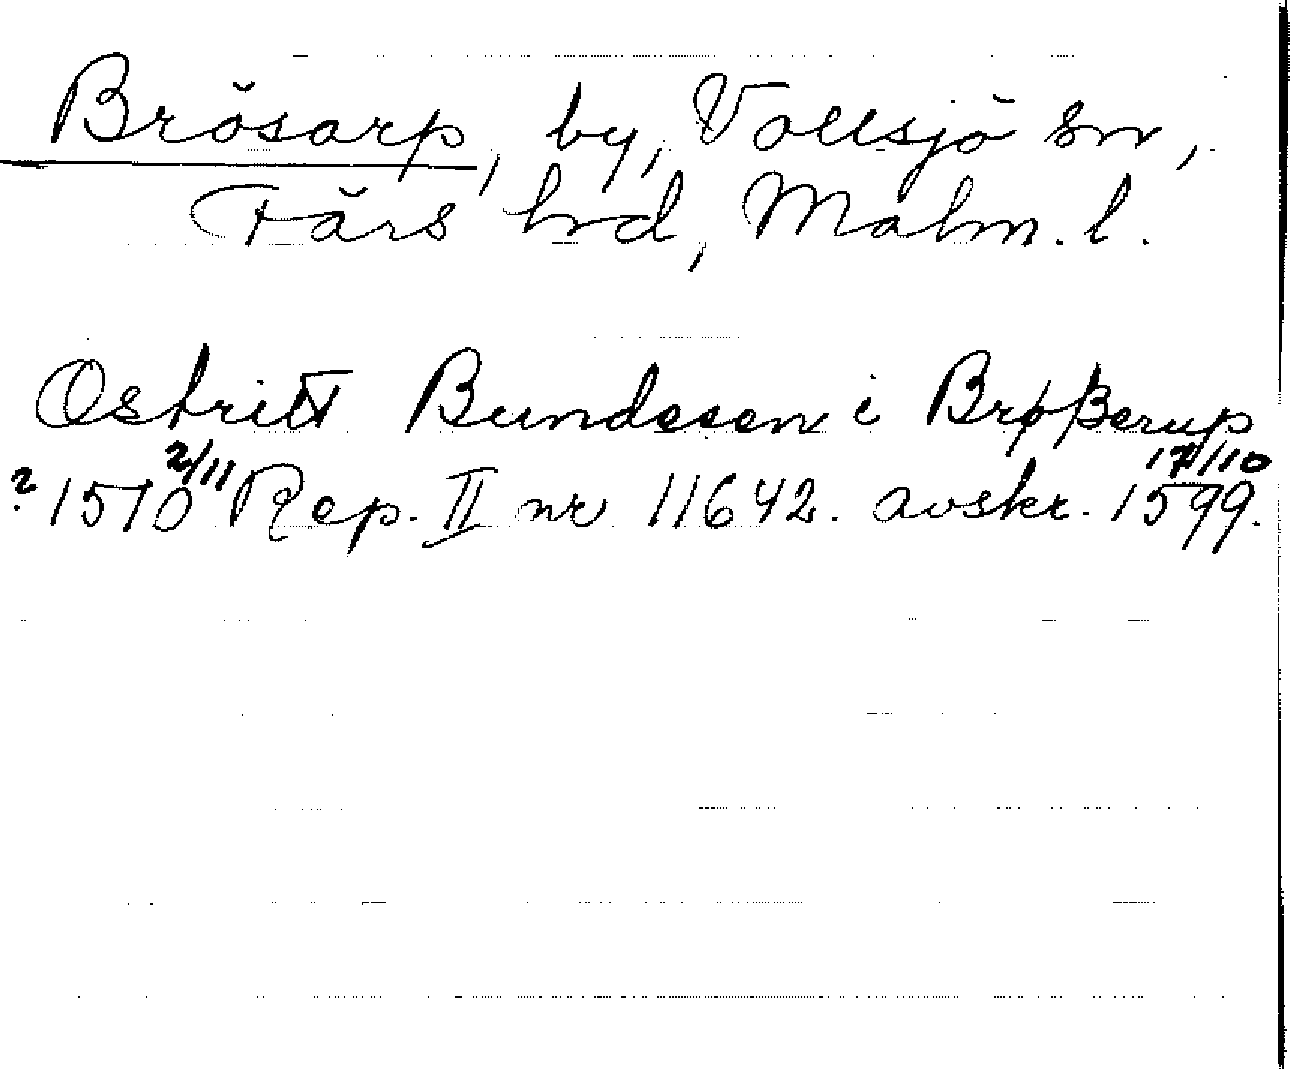 Brösarp, by, Vollsjö sn,
Färs hd, Malm. l.
Ostritt Bundssen i Brøßerup
? 1510 2/11 Rep. II nr 11642. avskr. 1599 17/10.